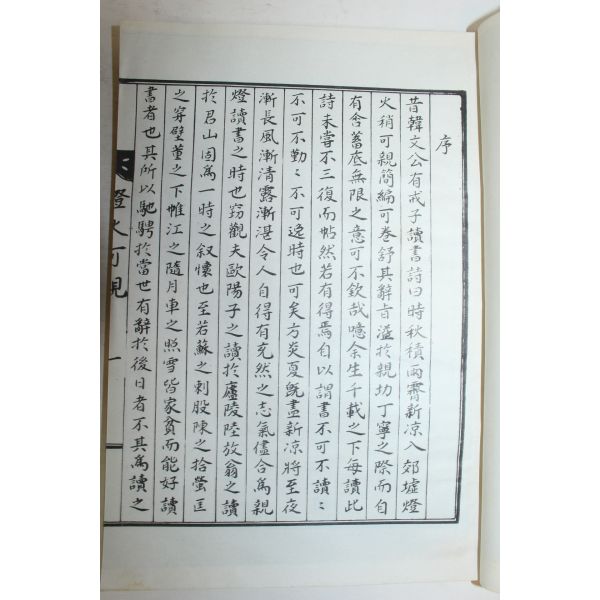 序
昔韓文公有戒子讀書詩曰時秋積雨霽新凉入郊墟燈
火稍可親簡編可卷舒其辭旨溢於親切丁寧之際而自
有含蓄底無限之意可不欽哉噫余生千載之下每讀此
詩未嘗不三復而帖然若有得焉自以謂書不可不讀讀
不可不勤勤不可逸時也可矣方炎夏旣盡新凉將至夜
漸長風漸清露漸湛令人自得有充然之志氣儘合爲親
燈讀書之時也窃觀夫歐陽子之讀於廬陵陸放翁之讀
於君山固爲一時之叙懷也至若蘇之刺股陳之拾螢匡
之穿壁董之下帷江之隨月車之照雪皆家貧而能好讀
書者也其所以馳騁於當世有辭於後日者不其爲讀之
燈火可親
一